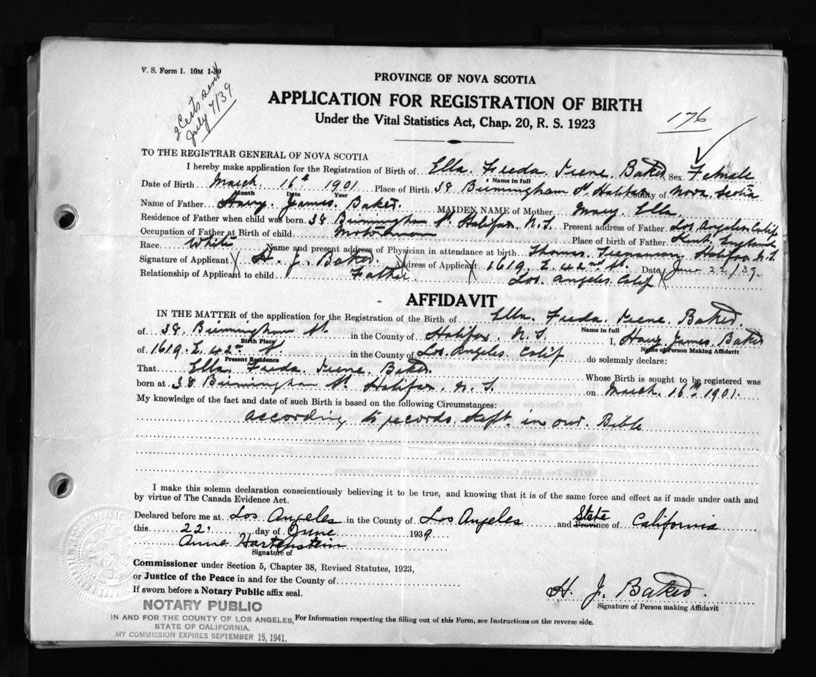 V. S. Form 1. 10M 1-39
2 Certs sent
July 7/39
PROVINCE OF NOVA SCOTIA
APPLICATION FOR REGISTRATION OF BIRTH
Under the Vital Statistics Act, Chap. 20, R. S. 1923
176
TO THE REGISTRAR GENERAL OF NOVA SCOTIA
I hereby make application for the Registration of Birth of Ella Freda Irene Baker Sex Female
Name in full
Date of Birth March 16th 1901 Place of Birth 38 Birmingham St Halifax County of Nova Scotia
Month Date Year
Name of Father Harry James Baker MAIDEN NAME of Mother Mary Ella
Residence of Father when child was born 38 Birmingham St. Halifax N.S. Present address of Father Los Angeles Calif
Occupation of Father at Birth of child Place of birth of Father Kent, England
Race White Name and present address of Physician in attendance at birth Thomas Halifax N.S.
Signature of Applicant H. J. Baker Address of Applicant 1619 E. 42nd St. Date June 22/39
Relationship of Applicant to child Father Los Angeles Calif
AFFIDAVIT
IN THE MATTER of the application for the Registration of the Birth of Ella Freda Irene Baker
Name in full
of 38 Birmingham St. in the County of Halifax N.S. I, Harry James Baker
Birth Place Name of Person Making Affidavit
of 1619 E. 42nd St in the County of Los Angeles Calif do solemnly declare:
Present Residence
That Ella Freda Irene Baker Whose Birth is sought to be registered was
born at 38 Birmingham St Halifax N.S on March 16th 1901.
My knowledge of the fact and date of such Birth is based on the following Circumstances:
according to records kept in our Bible
I make this solemn declaration conscientiously believing it to be true, and knowing that it is of the same force and effect as if made under oath and
by virtue of The Canada Evidence Act.
Declared before me at Los Angeles in the County of Los Angeles and State Province of California
this 22 day of June 1939
Anne Hartenstein
Signature of
Commissioner under Section 5, Chapter 38, Revised Statutes, 1923,
or Justice of the Peace in and for the County of
If sworn before a Notary Public affix seal.
H. J. Baker
Signature of Person making Affidavit
NOTARY PUBLIC
IN AND FOR THE COUNTY OF LOS ANGELES,
STATE OF CALIFORNIA.
MY COMMISSION EXPIRES SEPTEMBER 15, 1941.
For Information respecting the filling out of this Form, see Instructions on the reverse side.